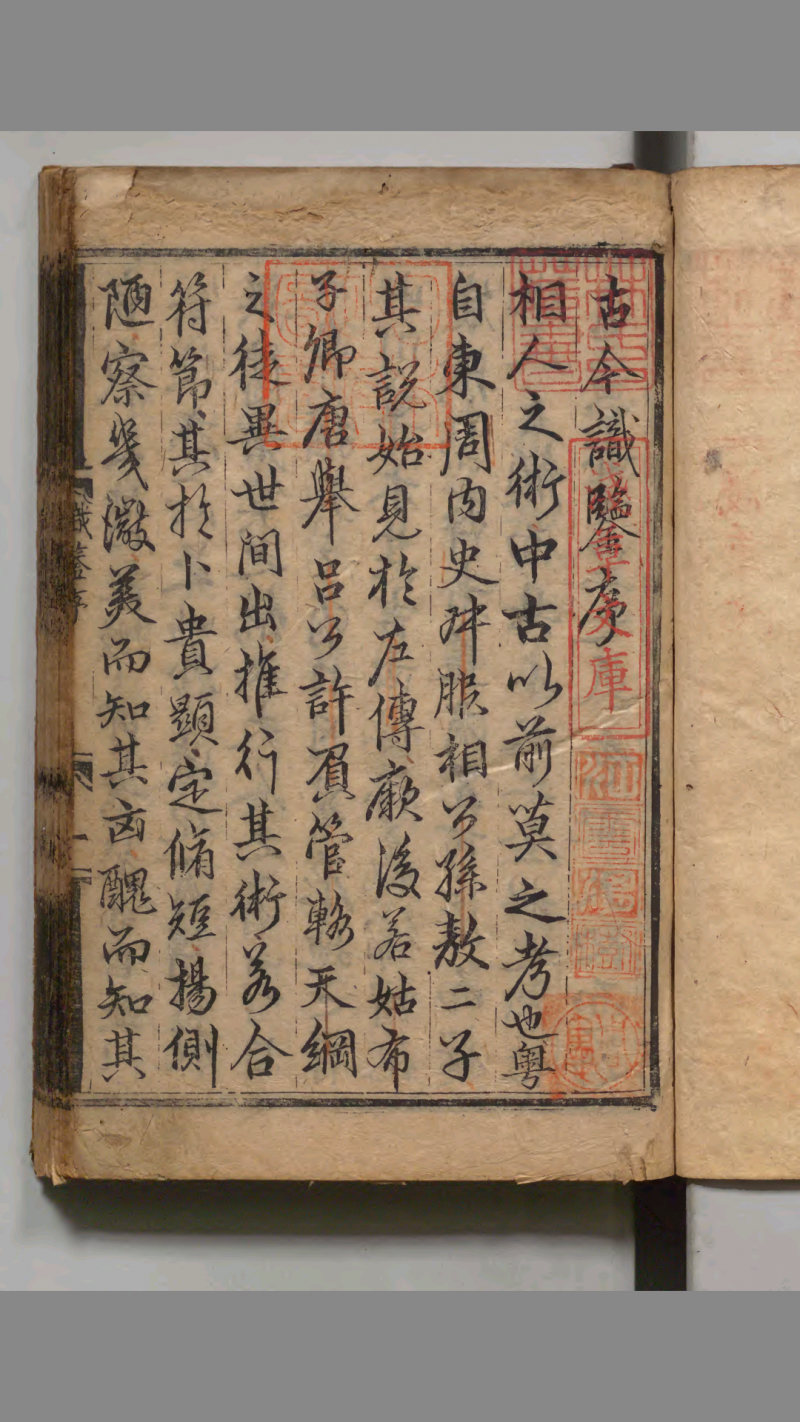 古今識鑒序
相人之術中古以前莫之考也粵
自東周内史叔服相公孫敖二子
其説始見於左傳厥後若姑布
子卿唐舉呂公許負管輅天綱
之徒異世間出推行其術若合
符節其於卜貴顯定脩短揚側
陋察幾微美而知其凶醜而知其
識鑒序
一
文庫